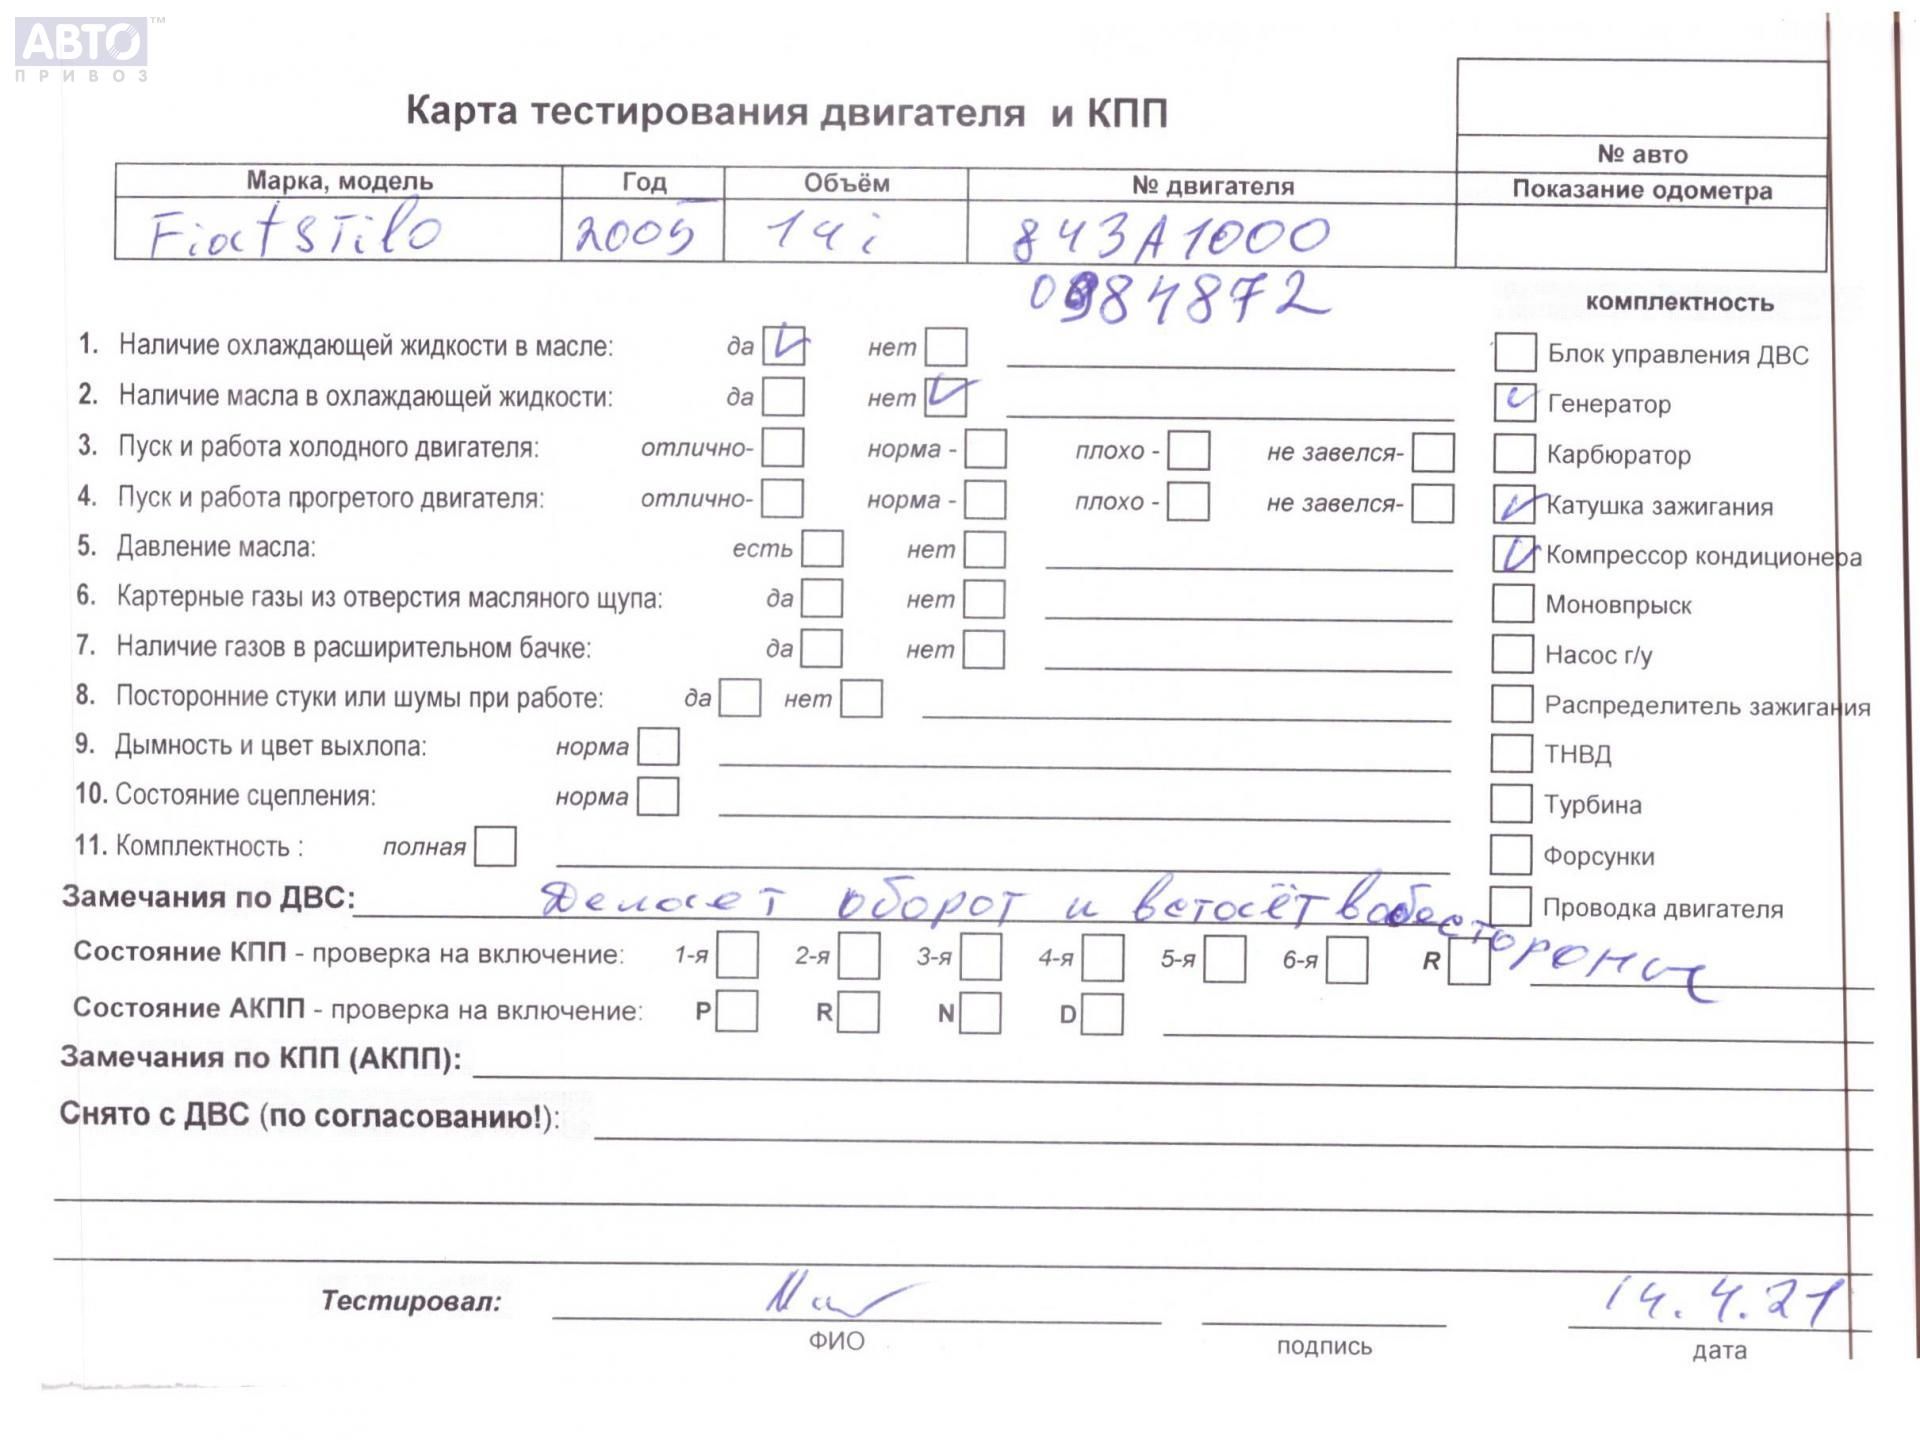 АВТО™
ПРИВОЗ
Карта тестирования двигателя и КПП
№ авто
Марка, модель Год Объём № двигателя Показание одометра
Fiat STilo 2005 14i 843A1000
0984872
комплектность
1. Наличие охлаждающей жидкости в масле: да нет Блок управления ДВС
2. Наличие масла в охлаждающей жидкости: да нет Генератор
3. Пуск и работа холодного двигателя: отлично- норма - плохо - не завелся- Карбюратор
4. Пуск и работа прогретого двигателя: отлично- норма - плохо - не завелся- Катушка зажигания
5. Давление масла: есть нет Компрессор кондиционера
6. Картерные газы из отверстия масляного щупа: да нет Моновпрыск
7. Наличие газов в расширительном бачке: да нет Насос г/у
8. Посторонние стуки или шумы при работе: да нет Распределитель зажигания
9. Дымность и цвет выхлопа: норма ТНВД
10. Состояние сцепления: норма Турбина
11. Комплектность : полная Форсунки
Замечания по ДВС: Делает оборот и встаёт в обе стороны Проводка двигателя
Состояние КПП - проверка на включение: 1-я 2-я 3-я 4-я 5-я 6-я R
Состояние АКПП - проверка на включение: P R N D
Замечания по КПП (АКПП):
Снято с ДВС (по согласованию!):
Тестировал: 14.4.21
ФИО подпись дата